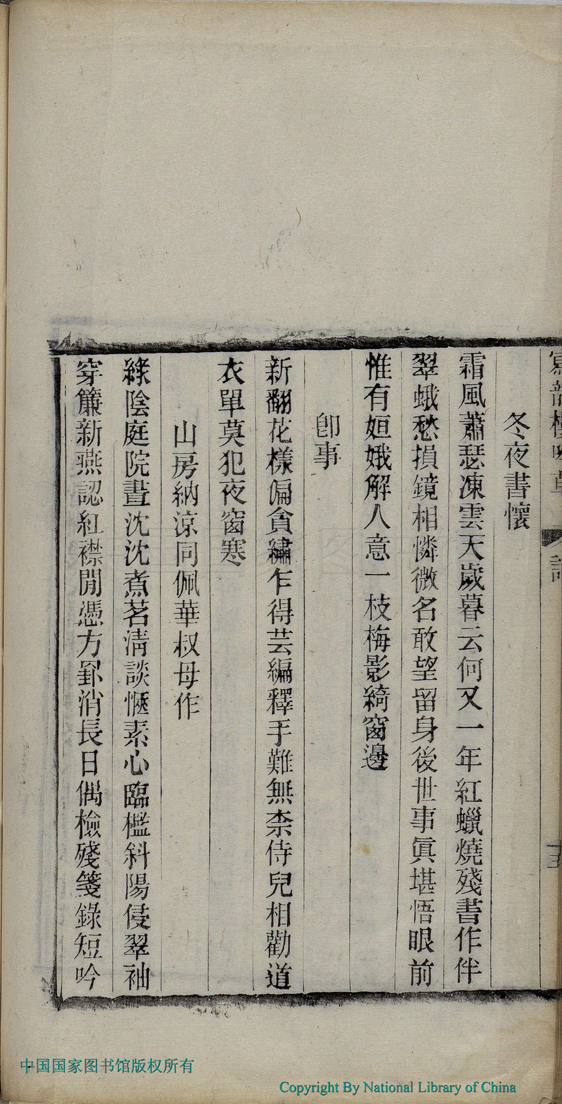 冬夜書懷
霜風蕭瑟凍雲天歲暮云何又一年紅蠟燒殘書作伴
翠蛾愁損鏡相憐微名敢望留身後世事眞堪悟眼前
惟有姮娥解人意一枝梅影綺窗邊
卽事
新翻花樣偏貪繡乍得芸編釋手難無柰侍兒相勸道
衣單莫犯夜窗寒
山房納涼同佩華叔母作
綠陰庭院晝沈沈煮茗淸談愜素心臨檻斜陽侵翠袖
穿簾新燕認紅襟閒憑方罫消長日偶檢殘箋錄短吟
中国国家图书馆版权所有
Copyright By National Library of China